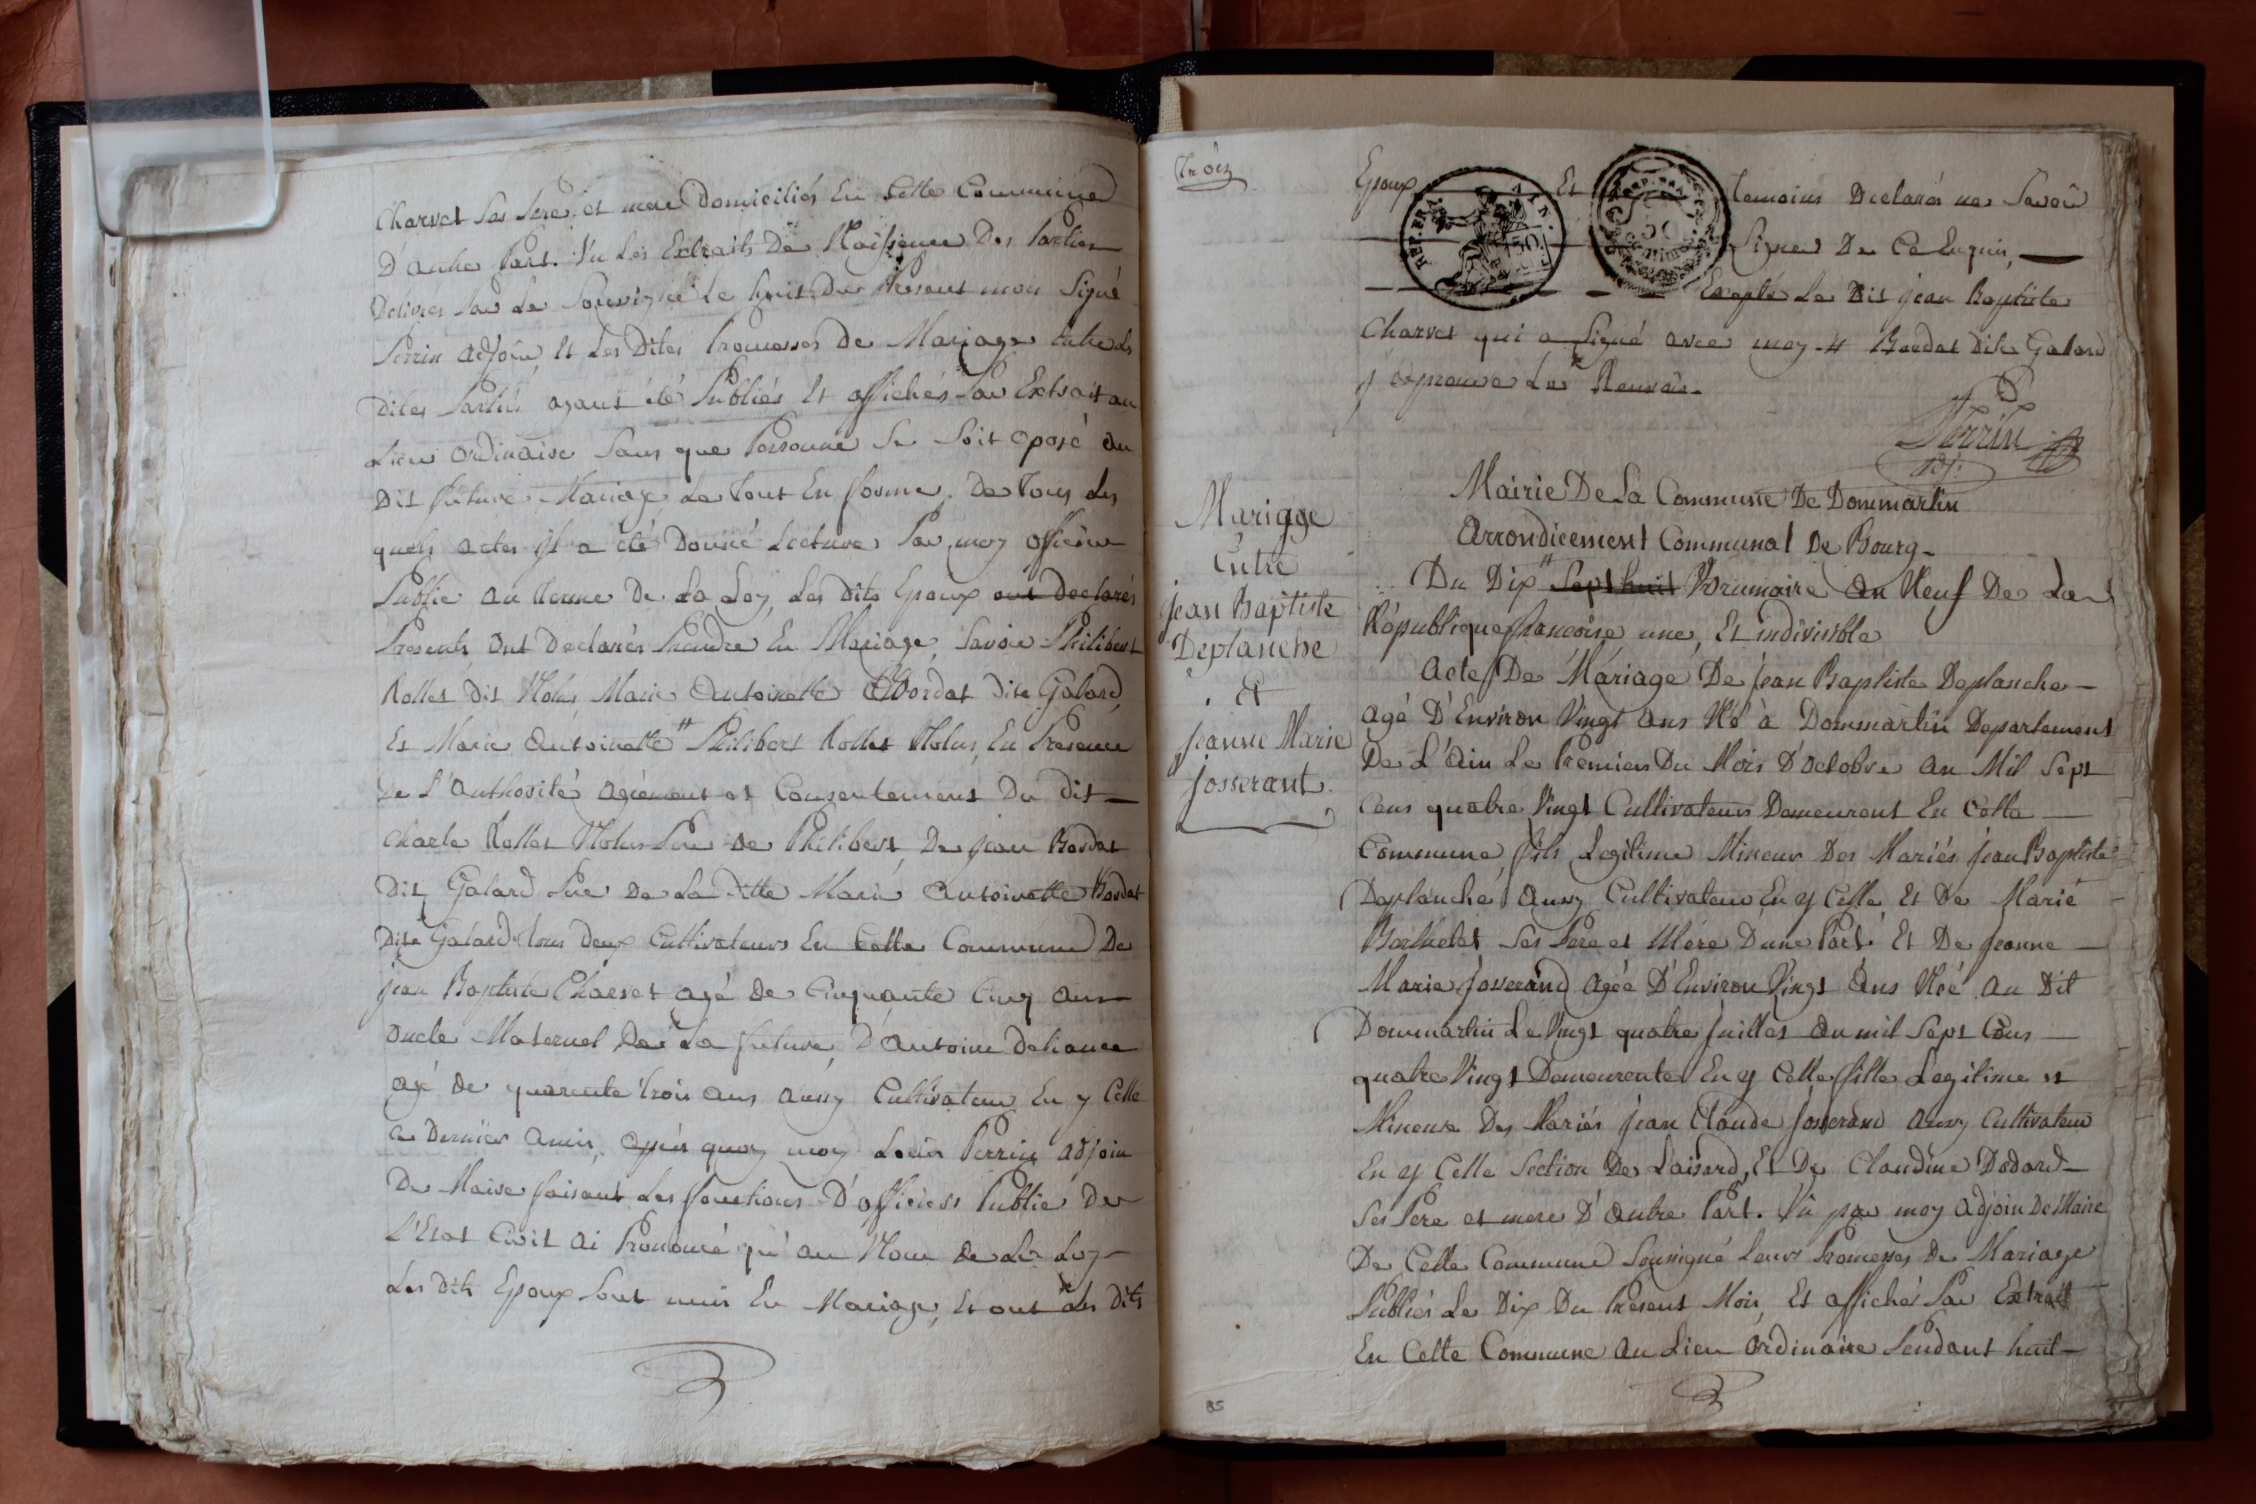 Charvet Ses Pere et mere Domiciliés En Cette Commune
D'autre Part. Vu Les Extraits De Naissance Des Parties
Delivrés Par Le Soussigné Le huit Du Present mois Signé
Perrin adjoin, Et Les Dites Promesses De Mariage Entre Les
Dites Parties ayant été Publiés Et affichés Par Extrait au
Lieu ordinaire Sans que Personne Se Soit oposé au
Dit future Mariage, Le Tout En forme, De Tous Les
quels actes il a été Donné Lecture Par moy officier
Public au Terme De La Loy, Les Dits Epoux ont Declarés
Presents ont Declarés Prendre En Mariage, Savoir Philibert
Rollet Dit Molus Marie Antoinette Bordat Dite Galard,
Et Marie Antoinette # Philibert Rollet Molus, En Presence
De L'Authosité agrément et Consentement Du Dit
Charle Rollet Molus Pere De Philibert, De Jean Bordat
Dit Galard Pere De La Ditte Marie Antoinette Bordat
Dite Galard Tous Deux Cultivateurs En Cette Commune De
Jean Baptiste Charvet agé De Cinquante Cinq ans
Oncle Maternel De La future, D'antoine Deliance
agé De quarente trois ans aussy Cultivateur En y Celle
Ce Dernier amis, après quoy moy Perrin adjoin
De Maire faisant Les fonctions D'officiers Public De
L'Etat Civil ai Prononcé qu'au Nom De La Loy
Les Dits Epoux Sont unis En Mariage, Et ont Les Dits
Trois
Epoux Et temoins Declarés ne Savoir
Signer De Ce Enquis,
Excepté Le Dit Jean Baptiste
Charvet qui a Signé avec moy # Bordat Dite Galard
j'approuve Le Renvoie
Perrin
adj.
Mairie De La Commune De Dommartin
Arrondicement Communal De Bourg
Mariage
Entre
Jean Baptiste
Deplanche
et
Jeanne Marie
Josserant
Du Dix # Sept huit Brumaire An Neuf De La
République françoise une, Et indivisible
Acte De Mariage De Jean Baptiste Deplanche
agé D'Environ Vingt ans Né à Dommartin Departement
De L'Ain Le Premier Du Mois D'octobre an Mil Sept
Cens quatre Vingt Cultivateurs Demeurant En Cette
Commune, fils Legitime Mineur Des Mariés Jean Baptiste
Deplanche, aussy Cultivateur En y Celle Et De Marie
Berthelet Ses Pere et Mere D'une Part. Et De Jeanne
Marie Josserand agée D'Environ Vingt Ans Née au Dit
Dommartin Le Vingt quatre Juillet an mil Sept Cens
quatre Vingt Demeurente En y Celle fille Legitime et
Mineure Des Mariés Jean Claude Josserand aussy Cultivateur
En y Celle Section De Laisard, Et De Claudine Dodard
Ses Pere et mere D'autre Part. Vû par moy adjoin De Maire
De Cette Commune Soussigné Leurs Promesses De Mariage
Publiés Le Dix Du Present Mois, Et affiché Par Extrait
En Cette Commune au Lieu ordinaire Pendant huit
85